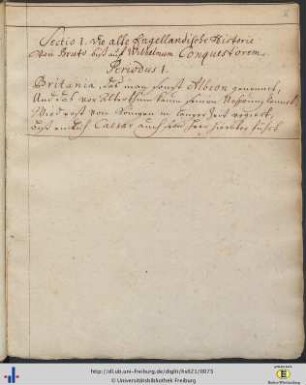 Sectio I. Die alte Engelländische Historie
von Bruto biß auf Wilhelmum Conquestorem.
Periodus I.
Britannia, hat man sonst Albion genennet,
Und das vor Alterthum kaum seinen
Wird erst von Königen in langer Zeit regiert,
Biß endlich Caesar auch sein Heer hierüber führt.
http://dl.ub.uni-freiburg.de/diglit/hs621/0073
© Universitätsbibliothek Freiburg